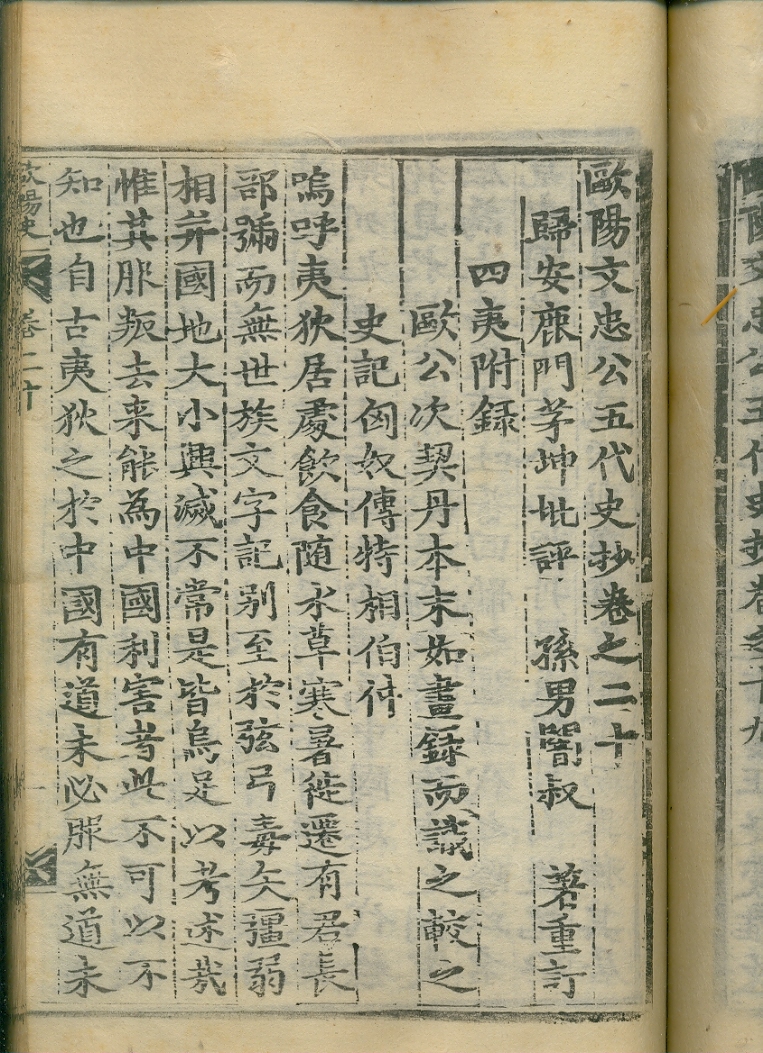 歐陽文忠公五代史抄卷之二十
歸安鹿門茅坤批評 孫男闇叔 著重訂
四夷附録
歐公次契丹本末如畫録而識之較之
史記匈奴傳特相伯仲
嗚呼夷狄居處飲食随水草寒暑徙遷有君長
部號而無世族文字記别至於弦弓毒矢彊弱
相并國地大小興滅不常是皆烏足以考述㢤
惟其服叛去来能為中國利害者此不可以不
知也自古夷狄之於中國有道未必服無道未
歐陽史 卷二十 一
歐陽文忠公五代史抄卷之十九